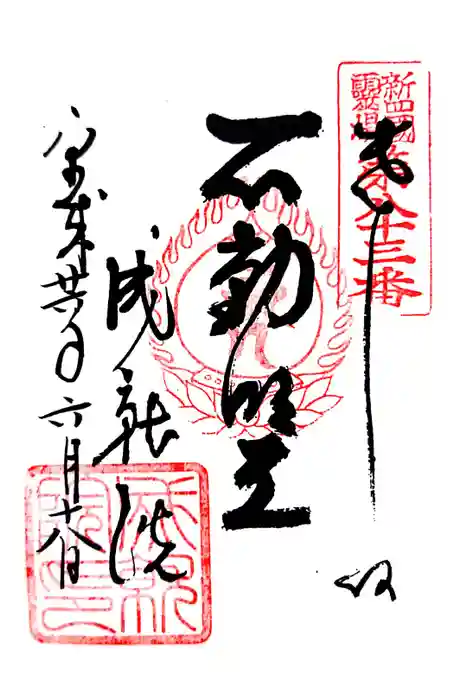 新四國
靈場
第八十三番
奉拝
不動明王
成就院
平成廿六年六月十八日